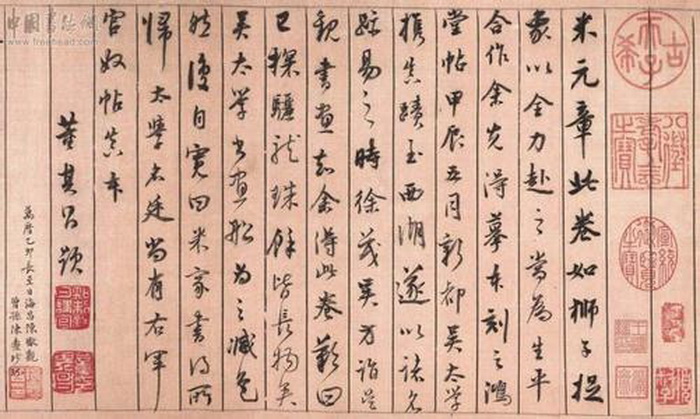 中國書法網
www.freehead.com
古希天子
八徵耄念之寶
宣統御覽之寶
米元章此卷如獅子捉
象以全力赴之當為生平
合作余先得摹本刻之鴻
堂帖甲辰五月新都吳太學
携真蹟至西湖遂以諸名
跡易之時徐茂吳方詣吳
觀書畫知余得此卷歎曰
已探驪龍珠餘皆長物矣
吳太學書畫船為之減色
然復自寬曰米家書得所
歸太學名廷尚有右軍
官奴帖真本
董其昌題
萬曆乙卯長至日海昌陳觀
曾孫陳珍